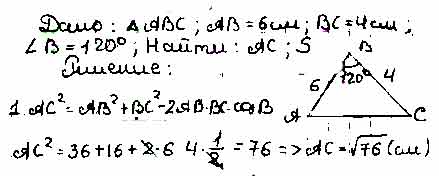 Дано: △ABC; AB=6см; BC=4см;
∠B=120°; Найти: AC; S
Решение:
B
6 120° 4
A C
1. AC²=AB²+BC²-2AB·BC·cosB
AC²=36+16+2·6 4·1/2=76=>AC=√76(см)